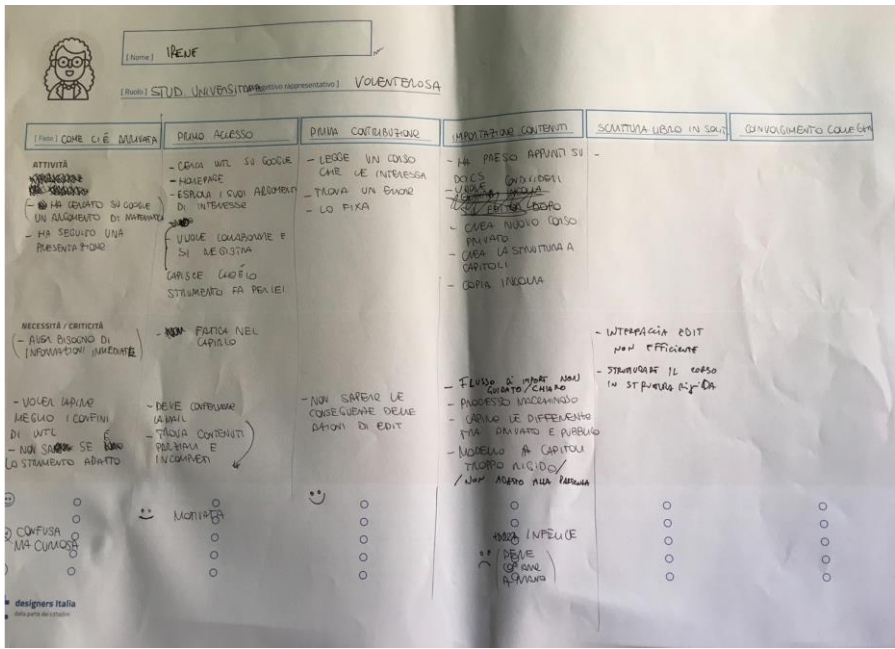 [Nome] IRENE
[Ruolo] STUD. UNIVERSITARIA
VOLENTEROSA
[Fase] COME CI È ARRIVATA
PRIMO ACCESSO
PRIMA CONTRIBUZIONE
IMPORTAZIONE CONTENUTI
SCRITTURA LIBRO IN
COINVOLGIMENTO COLLEGHI
ATTIVITÀ
- HA CERCATO SU GOOGLE
UN ARGOMENTO DI MATEMATICA
- HA SEGUITO UNA
PRESENTAZIONE
- CERCA WTL SU GOOGLE
- HOMEPAGE
- ESPLORA I SUOI ARGOMENTI
DI INTERESSE
- VUOLE COLLABORARE E
SI REGISTRA
CAPISCE CHE LO
STRUMENTO FA PER LEI
- LEGGE UN CORSO
CHE LE INTERESSA
- TROVA UN ERRORE
- LO FIXA
- HA PRESO APPUNTI SU
DOCS
- VUOLE CONDIVIDERLI
- CREA NUOVO CORSO
PRIVATO
- CREA LA STRUTTURA A
CAPITOLI
- COPIA INCOLLA
-
NECESSITÀ / CRITICITÀ
- AVER BISOGNO DI
INFORMAZIONI IMMEDIATE
- VOLER CAPIRE
MEGLIO I CONFINI
DI WTL
- NON SA SE È
LO STRUMENTO ADATTO
- FATICA NEL
CAPIRLO
- DEVE CONFERMARE
LA MAIL
- TROVA CONTENUTI
PARZIALI E
INCOMPLETI
- NON SAPERE LE
CONSEGUENZE DELLE
AZIONI DI EDIT
- FLUSSO DI IMPORT NON
GUIDATO/CHIARO
- PROCESSO MACCHINOSO
- CAPIRE LE DIFFERENZE
TRA PRIVATO E PUBBLICO
- MODELLO A CAPITOLI
TROPPO RIGIDO/
/NON ADATTO ALLA
- INTERFACCIA EDIT
NON EFFICIENTE
- STRUTTURARE IL CORSO
IN STRUTTURA RIGIDA
CONFUSA
MA CURIOSA
MOTIVATA
INFELICE
designers Italia